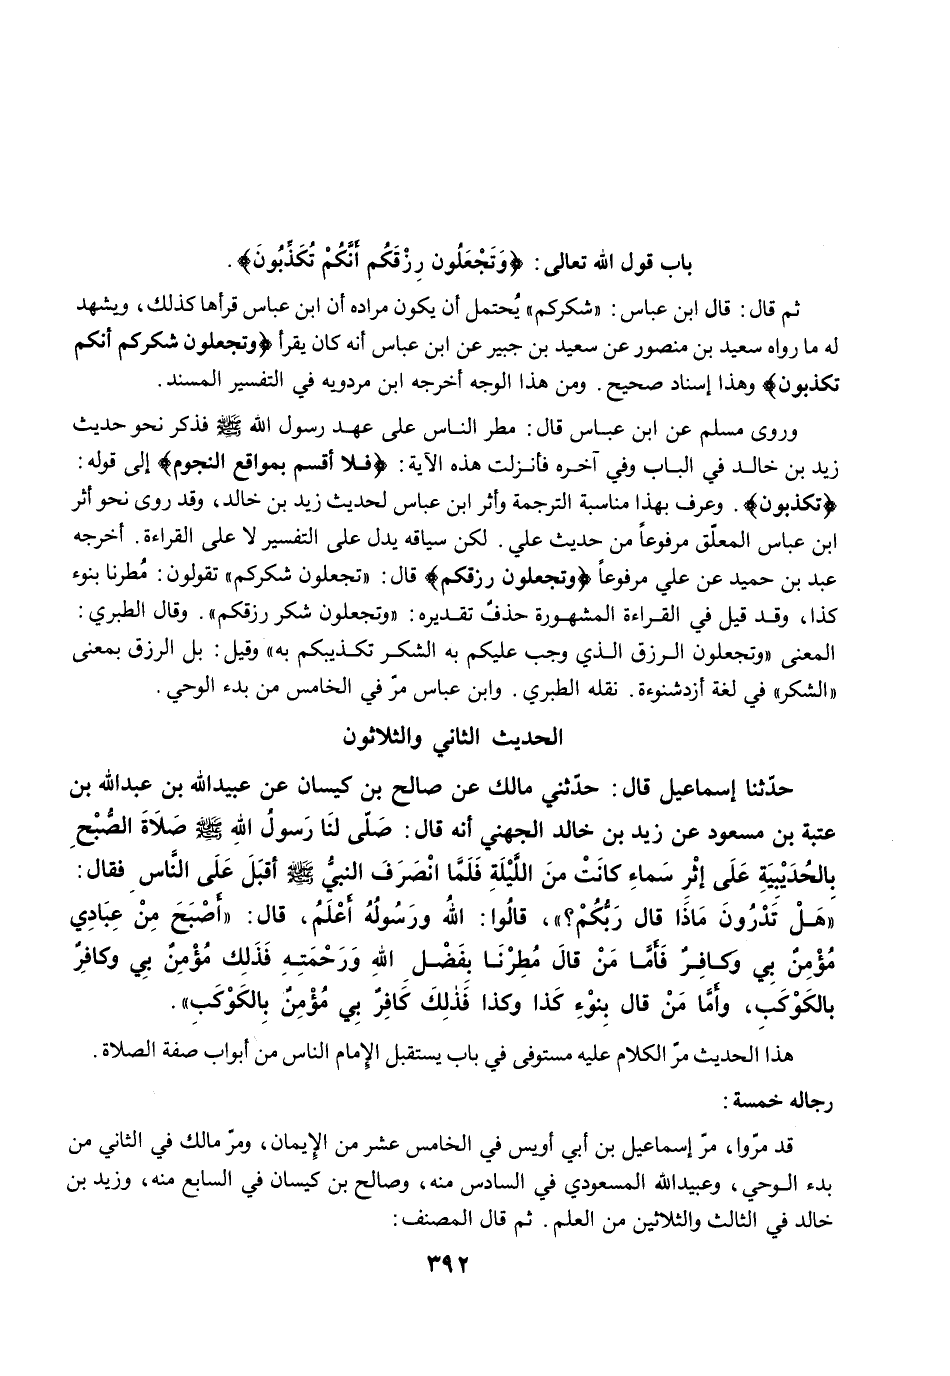 باب قول الله تعالى: ﴿وَتَجْعَلُون رِزْقَكُم أَنَّكُمْ تُكَذِّبُونَ﴾.
ثم قال: قال ابن عباس: «شكركم» يُحتمل أن يكون مراده أن ابن عباس قرأها كذلك، ويشهد
له ما رواه سعيد بن منصور عن سعيد بن جبير عن ابن عباس أنه كان يقرأ ﴿وتجعلون شكركم أنكم
تكذبون﴾ وهذا إسناد صحيح. ومن هذا الوجه أخرجه ابن مردويه في التفسير المسند.
وروى مسلم عن ابن عباس قال: مطر الناس على عهد رسول الله ﷺ فذكر نحو حديث
زيد بن خالد في الباب وفي آخره فأنزلت هذه الآية: ﴿فلا أقسم بمواقع النجوم﴾ إلى قوله:
﴿تكذبون﴾. وعرف بهذا مناسبة الترجمة وأثر ابن عباس لحديث زيد بن خالد، وقد روى نحو أثر
ابن عباس المعلّق مرفوعاً من حديث علي. لكن سياقه يدل على التفسير لا على القراءة. أخرجه
عبد بن حميد عن علي مرفوعاً ﴿وتجعلون رزقكم﴾ قال: «تجعلون شكركم» تقولون: مُطرنا بنوء
كذا، وقد قيل في القراءة المشهورة حذفٌ تقديره: «وتجعلون شكر رزقكم». وقال الطبري:
المعنى «وتجعلون الرزق الذي وجب عليكم به الشكر تكذيبكم به» وقيل: بل الرزق بمعنى
«الشكر» في لغة أزدشنوءة. نقله الطبري. وابن عباس مرّ في الخامس من بدء الوحي.
الحديث الثاني والثلاثون
حدّثنا إسماعيل قال: حدّثني مالك عن صالح بن كيسان عن عبيدالله بن عبدالله بن
عتبة بن مسعود عن زيد بن خالد الجهني أنه قال: صَلّى لنَا رَسولُ اللهِ ﷺ صَلَاةَ الصُّبْحِ
بِالحُدَيْبِيَةِ عَلَى إثْرِ سَماءٍ كانَتْ منَ اللَّيْلَةِ فَلَمَّا انْصَرَفَ النبيُّ ﷺ أقبَلَ عَلَى النَّاسِ فقال:
«هَلْ تَدْرُونَ مَاذَا قال رَبُّكُمْ؟»، قالُوا: اللهُ ورَسُولُهُ أعْلَمُ، قال: «أَصْبَحَ مِنْ عِبَادِي
مُؤْمِنٌ بِي وكافِرٌ فَأَمَّا مَنْ قالَ مُطِرْنَا بِفَضْلِ اللهِ وَرَحْمَتِهِ فَذَلِك مُؤْمِنٌ بي وكافِرٌ
بِالكَوْكَبِ، وأَمَّا مَنْ قال بِنوْءِ كَذا وكذا فَذٰلِكَ كَافِرٌ بِي مُؤْمِنٌ بِالكَوْكَبِ».
هذا الحديث مرّ الكلام عليه مستوفى في باب يستقبل الإمام الناس من أبواب صفة الصلاة.
رجاله خمسة:
قد مرّوا، مرّ إسماعيل بن أبي أويس في الخامس عشر من الإيمان، ومرّ مالك في الثاني من
بدء الوحي، وعبيدالله المسعودي في السادس منه، وصالح بن كيسان في السابع منه، وزيد بن
خالد في الثالث والثلاثين من العلم. ثم قال المصنف:
٣٩٢